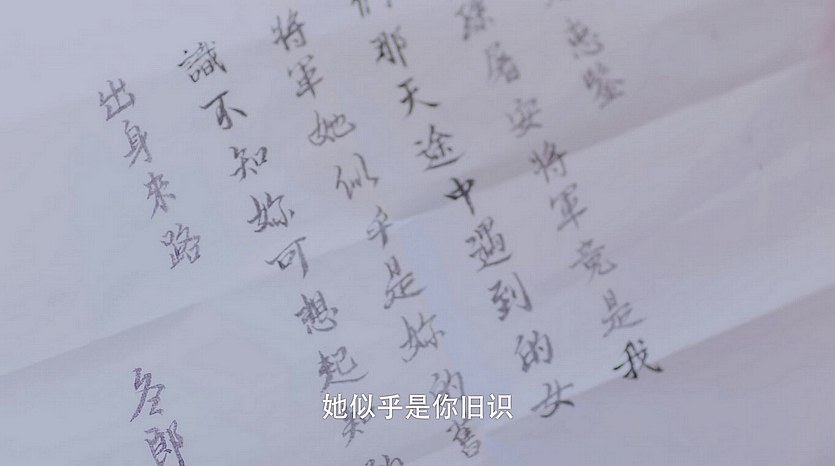 惠鑒
屠安將軍竟是我
們那天途中遇到的女
將軍她似乎是妳的舊
識不知妳可想起
出身來路
郎
她似乎是你旧识